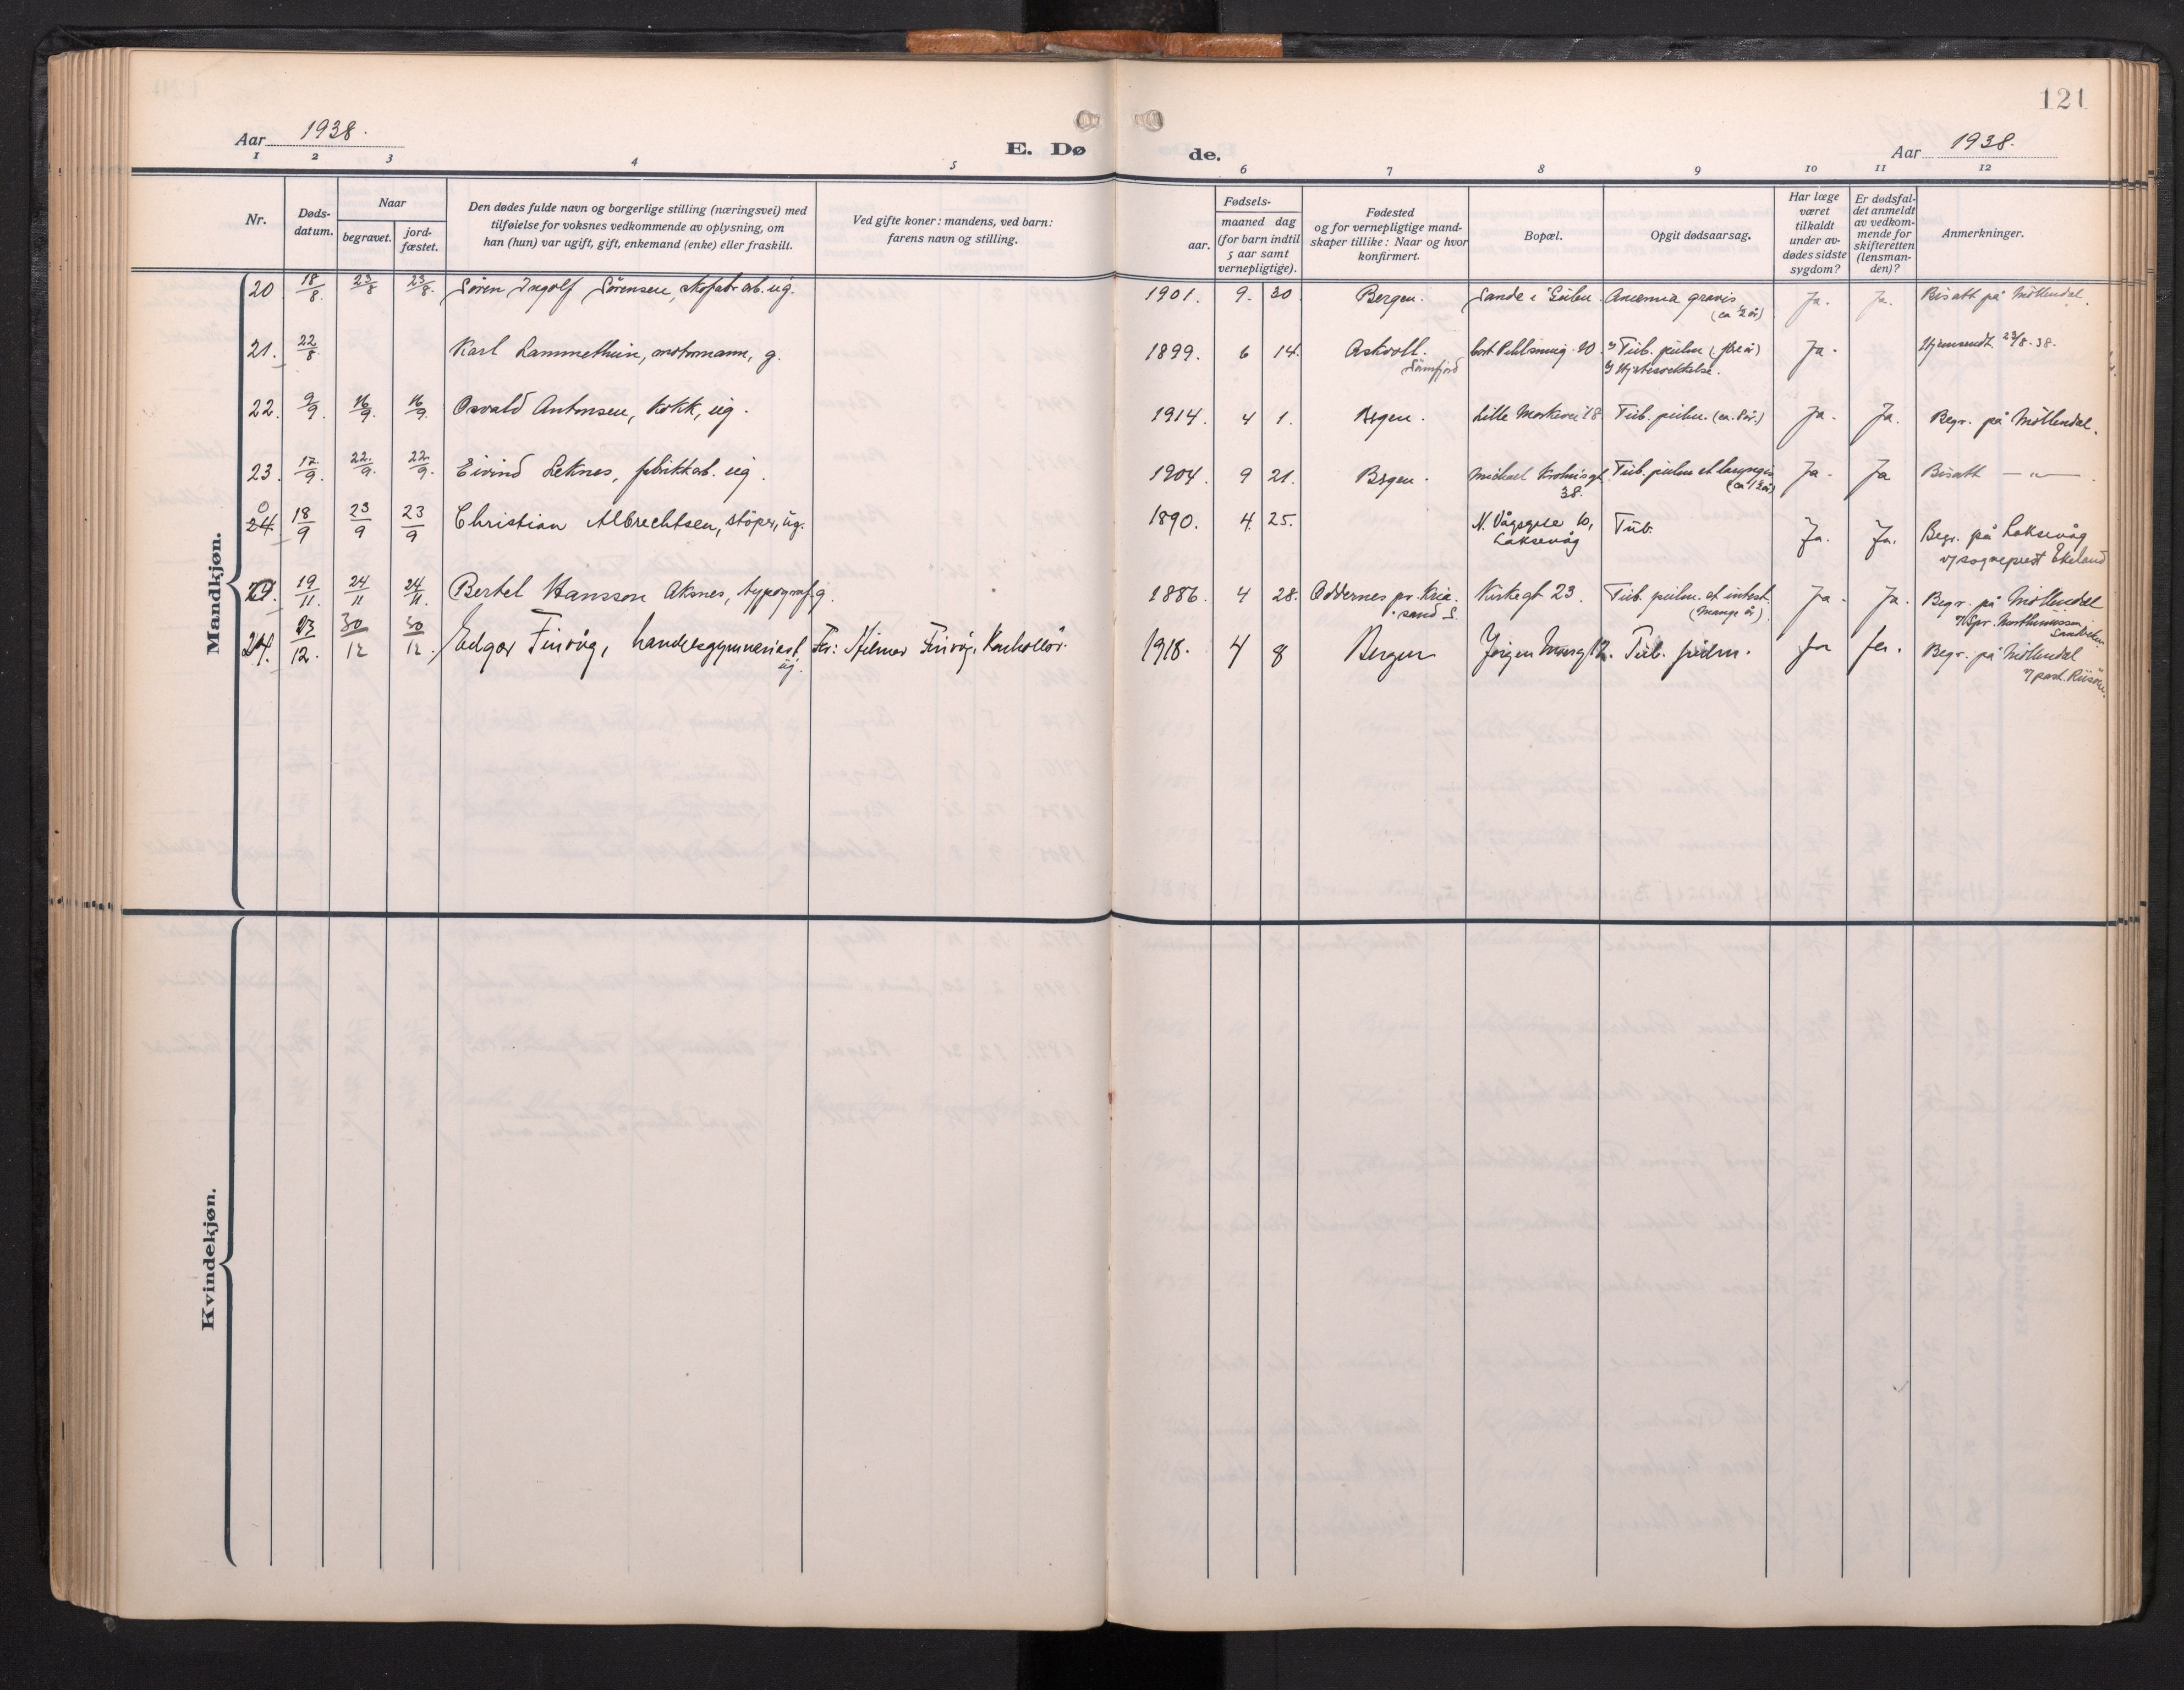 121
Aar 1938.
E. Dø de.
Aar 1938.
1 2 3 4 5 6 7 8 9 10 11 12
Nr.
Døds-
datum.
Naar
begravet.
jord-
fæstet.
Den dødes fulde navn og borgerlige stilling (næringsvei) med
tilføielse for voksnes vedkommende av oplysning, om
han (hun) var ugift, gift, enkemand (enke) eller fraskilt.
Ved gifte koner: mandens, ved barn:
farens navn og stilling.
Fødsels-
aar.
maaned dag
(for barn indtil
5 aar samt
vernepligtige).
Fødested
og for vernepligtige mand-
skaper tillike: Naar og hvor
konfirmert.
Bopæl.
Opgit dødsaarsag.
Har læge
været
tilkaldt
under av-
dødes sidste
sygdom?
Er dødsfal-
det anmeldt
av vedkom-
mende for
skifteretten
(lensman-
den)?
Anmerkninger.
Mandkjøn.
20 18/8. 23/8 23/8. Søren Ingolf Sørensen, skofabr.arb. ug. 1901. 9. 30 Bergen. Sande i Gulen. Anæmia gravis Ja. Ja. Bisatt på Möllendal.
(ca 1/2 år)
21. 22/8 Karl Lammethun, motormann, g. 1899. 6 14. Askvoll. Tub. pulm Ja. Hjemsendt 23/8-38.
Sunnfjord
22. 9/9. 16/9. 16/9. Osvald Antonsen, kokk, ug. 1914. 4 1. Bergen. Lille Markevei 18 Tub. pulm. (ca. 8 år.) Ja. Ja. Begr. på Möllendal.
23. 17/9. 22./9. 22./9. Eivind Leknes, fabrikkarb. ug. 1904. 9 21. Bergen. Michael Krohnsgt. Tub. pulm et laryngis Ja. Ja Bisatt — " —
38.
24 18/9 23/9 23/9 Christian Albrechtsen, støper, ug. 1890. 4. 25. N. Vågsgate 10, Tub. Ja. Ja. Begr. på Laksevåg
Laksevåg v/ sogneprest Ekeland
19/11. 24/11 24/11. Bertel Hansson Aksnes, typograf. g. 1886. 4 28. Oddernes pr. Kria. Kirkegt 23. Tub. pulm. et intest. Ja. Ja. Begr. på Möllendal
sand S. (mange år)
24. 23/12. 30/12 30/12. Edgar Finvåg, handelsgymnasiast, Fr: Hilmar Finvåg, Kontollör. 1918. 4 8 Bergen Jörgen Moesgt 12. Tub. pulm. Ja Ja. Begr. på Möllendal
ug.
Kvindekjøn.